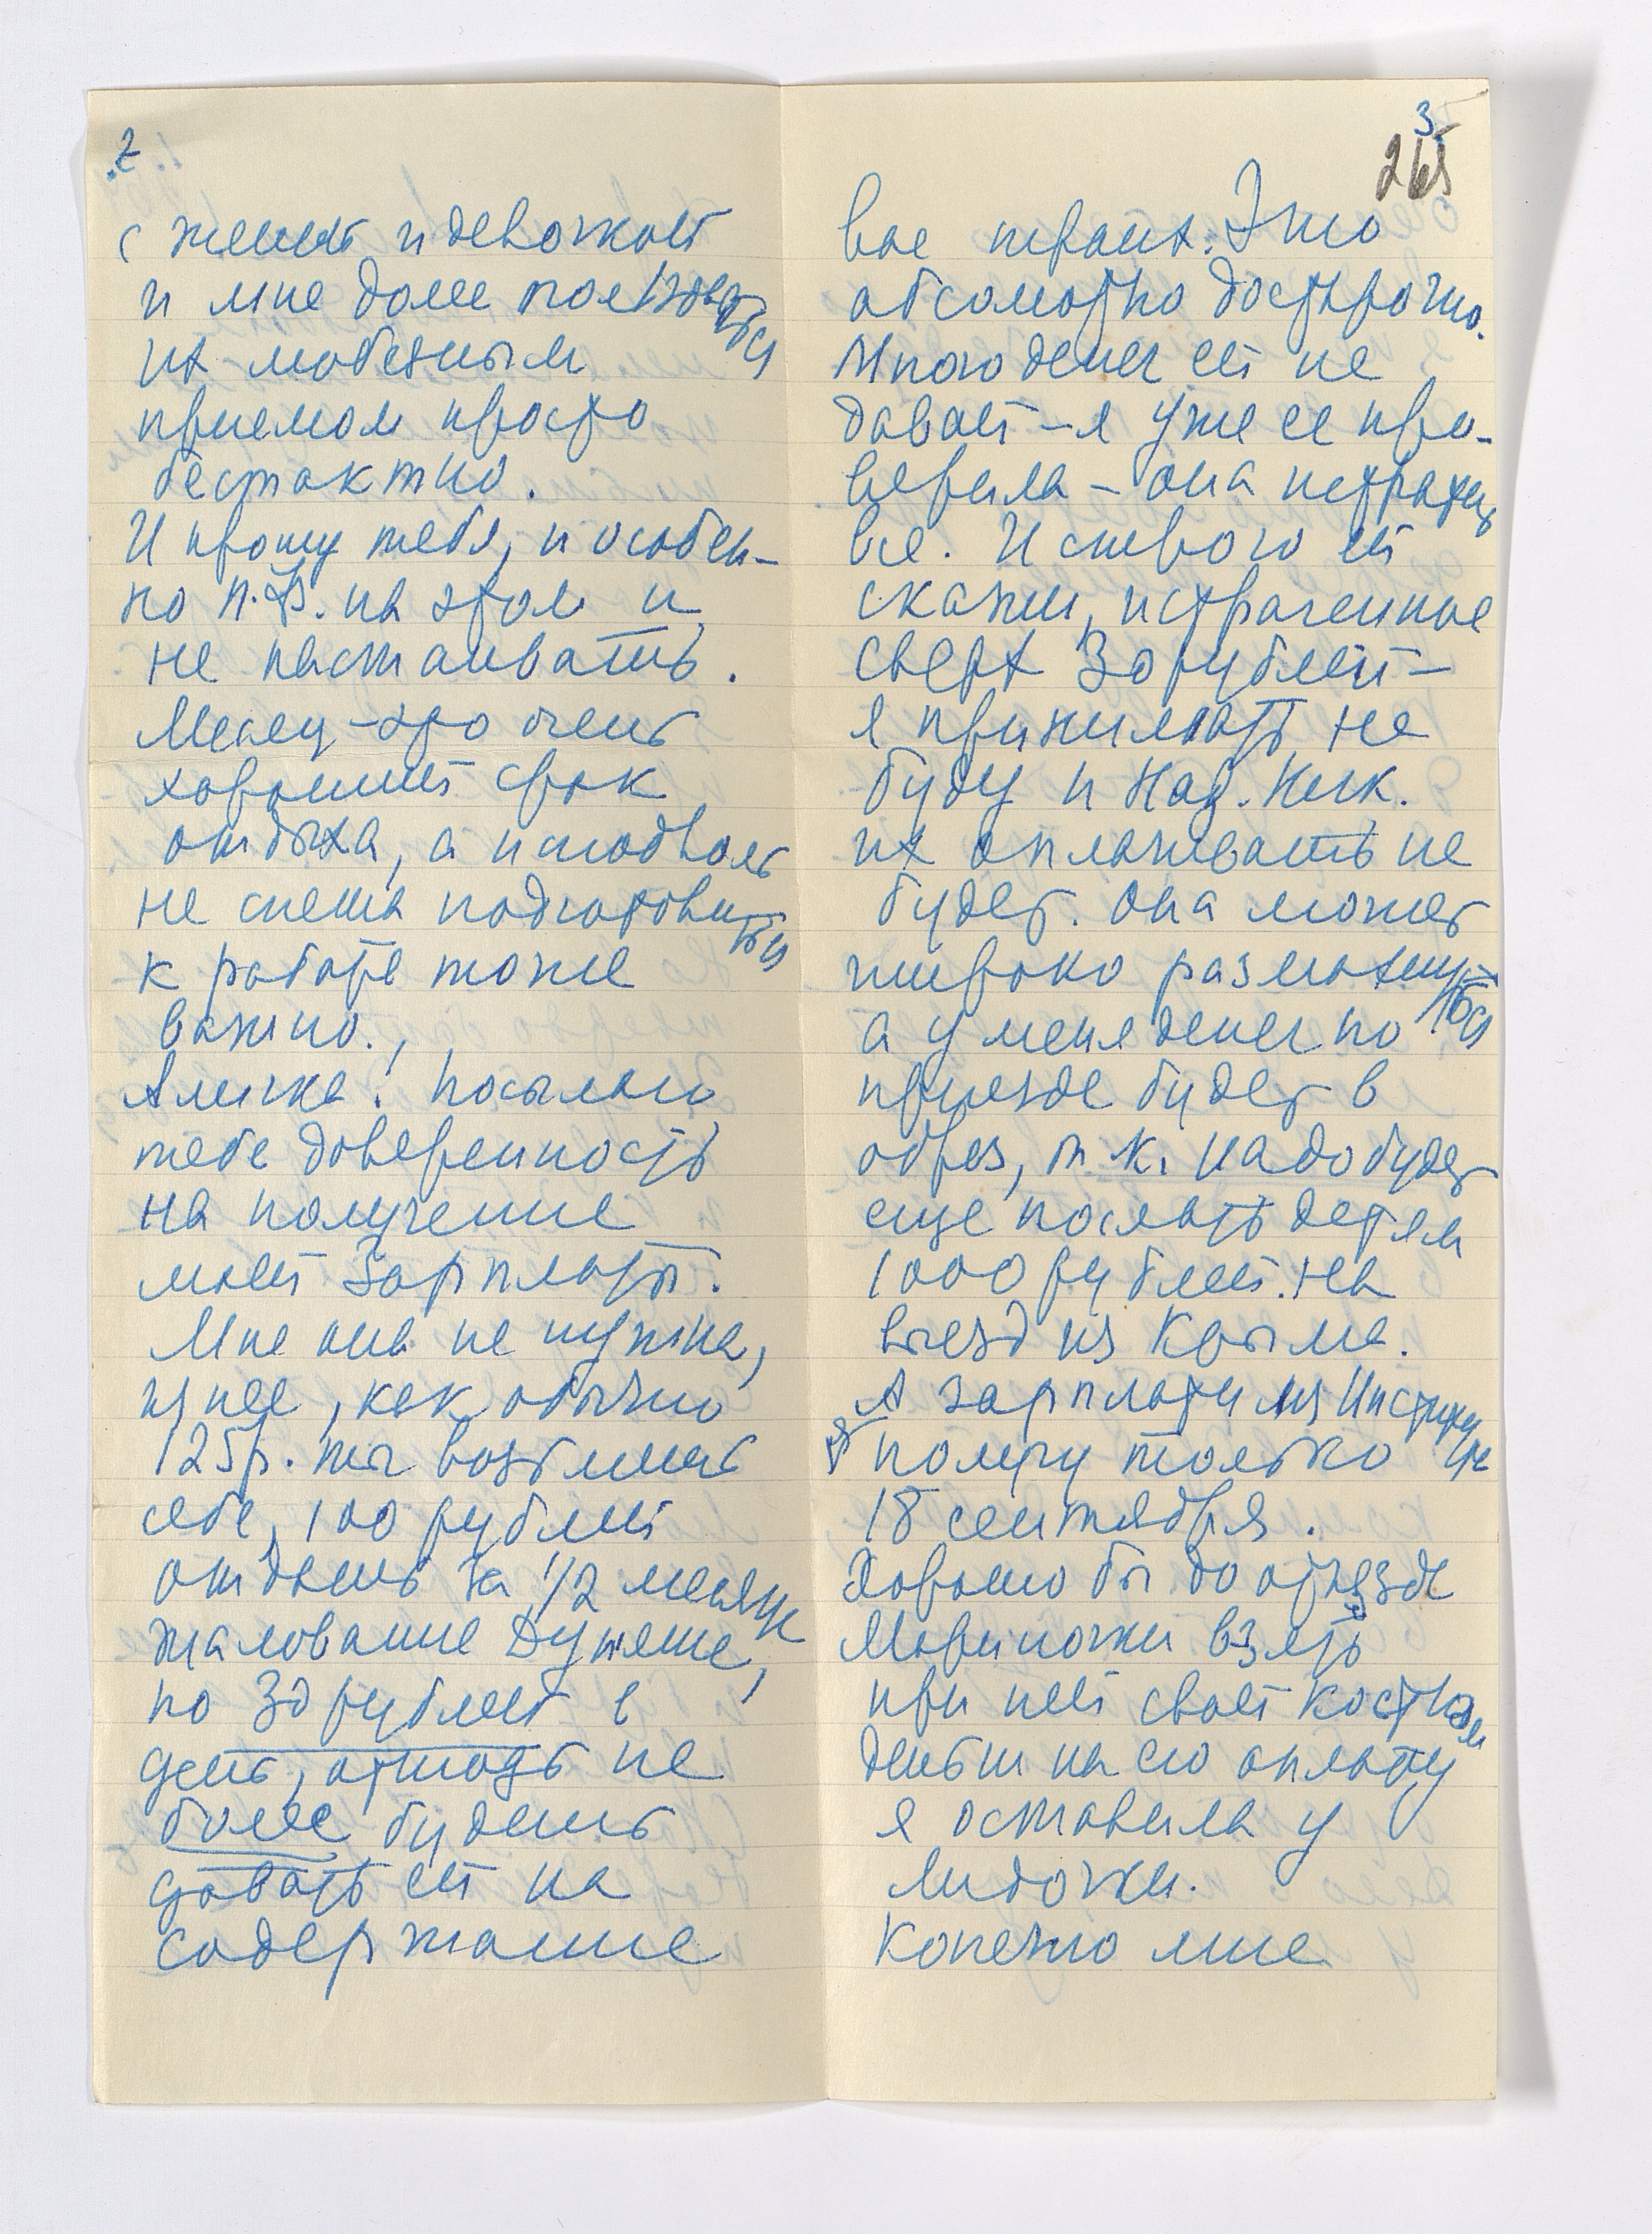 2.
с женой и девочкой
и мне долее пользоваться
их любезным
приемом просто
бестактно.
И прошу тебя, и особен-
но П.Ф. на этом и
не настаивать.
Месяц – это очень
хороший срок
отдыха, а исподволь
не спеша подготовиться
к работе тоже
важно.
Аличка! Посылаю
тебе доверенность
на получение
моей зарплаты.
Мне она не нужна,
из нее, как обычно
125 р. ты возьмешь
себе, 100 рублей
отдашь за 1/2 месяца
жалование Дуняше,
по 30 рублей в
день, отнюдь не
более будешь
давать ей на
содержание
3.
265
вас троих. Это
абсолютно достаточно.
Много денег ей не
давай – я уже ее про-
верила – она истратит
все. И строго ей
скажи, истраченные
сверх 30 рублей –
я принимать не
буду и Над. Ник.
их оплачивать не
будет. Она может
широко размахнуться
а у меня денег по
приезде будет в
обрез, т.к. надо будет
еще послать детям
1000 рублей на
выезд из Крыма.
А зарплату из Института
я получу только
18 сентября.
Хорошо бы до отъезда
Мариночки взять
при ней свой костюм
деньги на его оплату
я оставила у
Лидочки.
Конечно мне